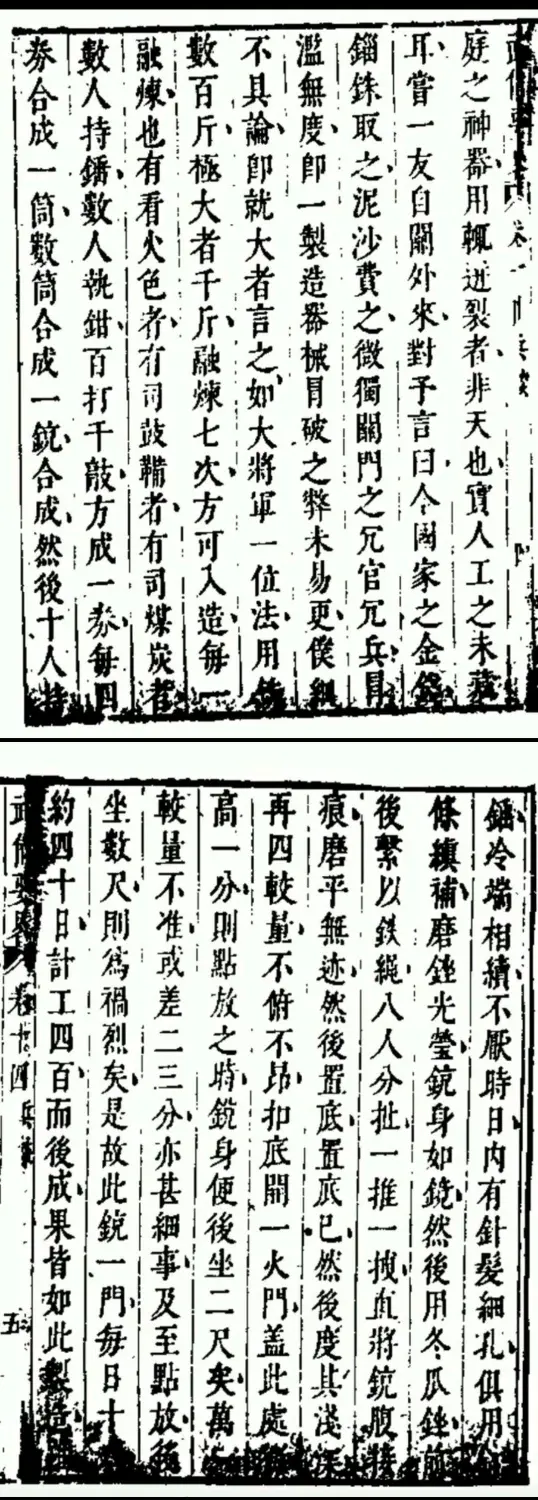 庭之神器用輒迸裂者非天也實人工之未
耳嘗一友自關外來對予言曰今國家之金錢
錙銖取之泥沙費之微獨關門之冗官冗兵冒
濫無度卽一製造器械冒破之弊未易更僕
不具論卽就大者言之如大將軍一位法用
數百斤極大者千斤融煉七次方可入造每一
融煉也有看火色者有司鼓鞴者有司煤炭者
數人持鐇數人執鉗百打千敲方成一劵每四
劵合成一筒數筒合成一銃合成然後十人持
鐇冷端相續不厭時日內有針髮細孔俱用
條縝補磨銼光瑩銃身如鏡然後用冬瓜銼
後繫以鉄繩八人分扯一推一拽直將銃腹
痕磨平無迹然後置底置底已然後度其淺深
再四較量不俯不昂扣底開一火門盖此處
高一分則點放之時銃身便後坐二尺矣萬一
較量不准或差二三分亦甚細事及至點放後
坐數尺則爲禍烈矣是故此銃一門每日十
約四十日計工四百而後成果皆如此製造
武備要畧 卷十四 五